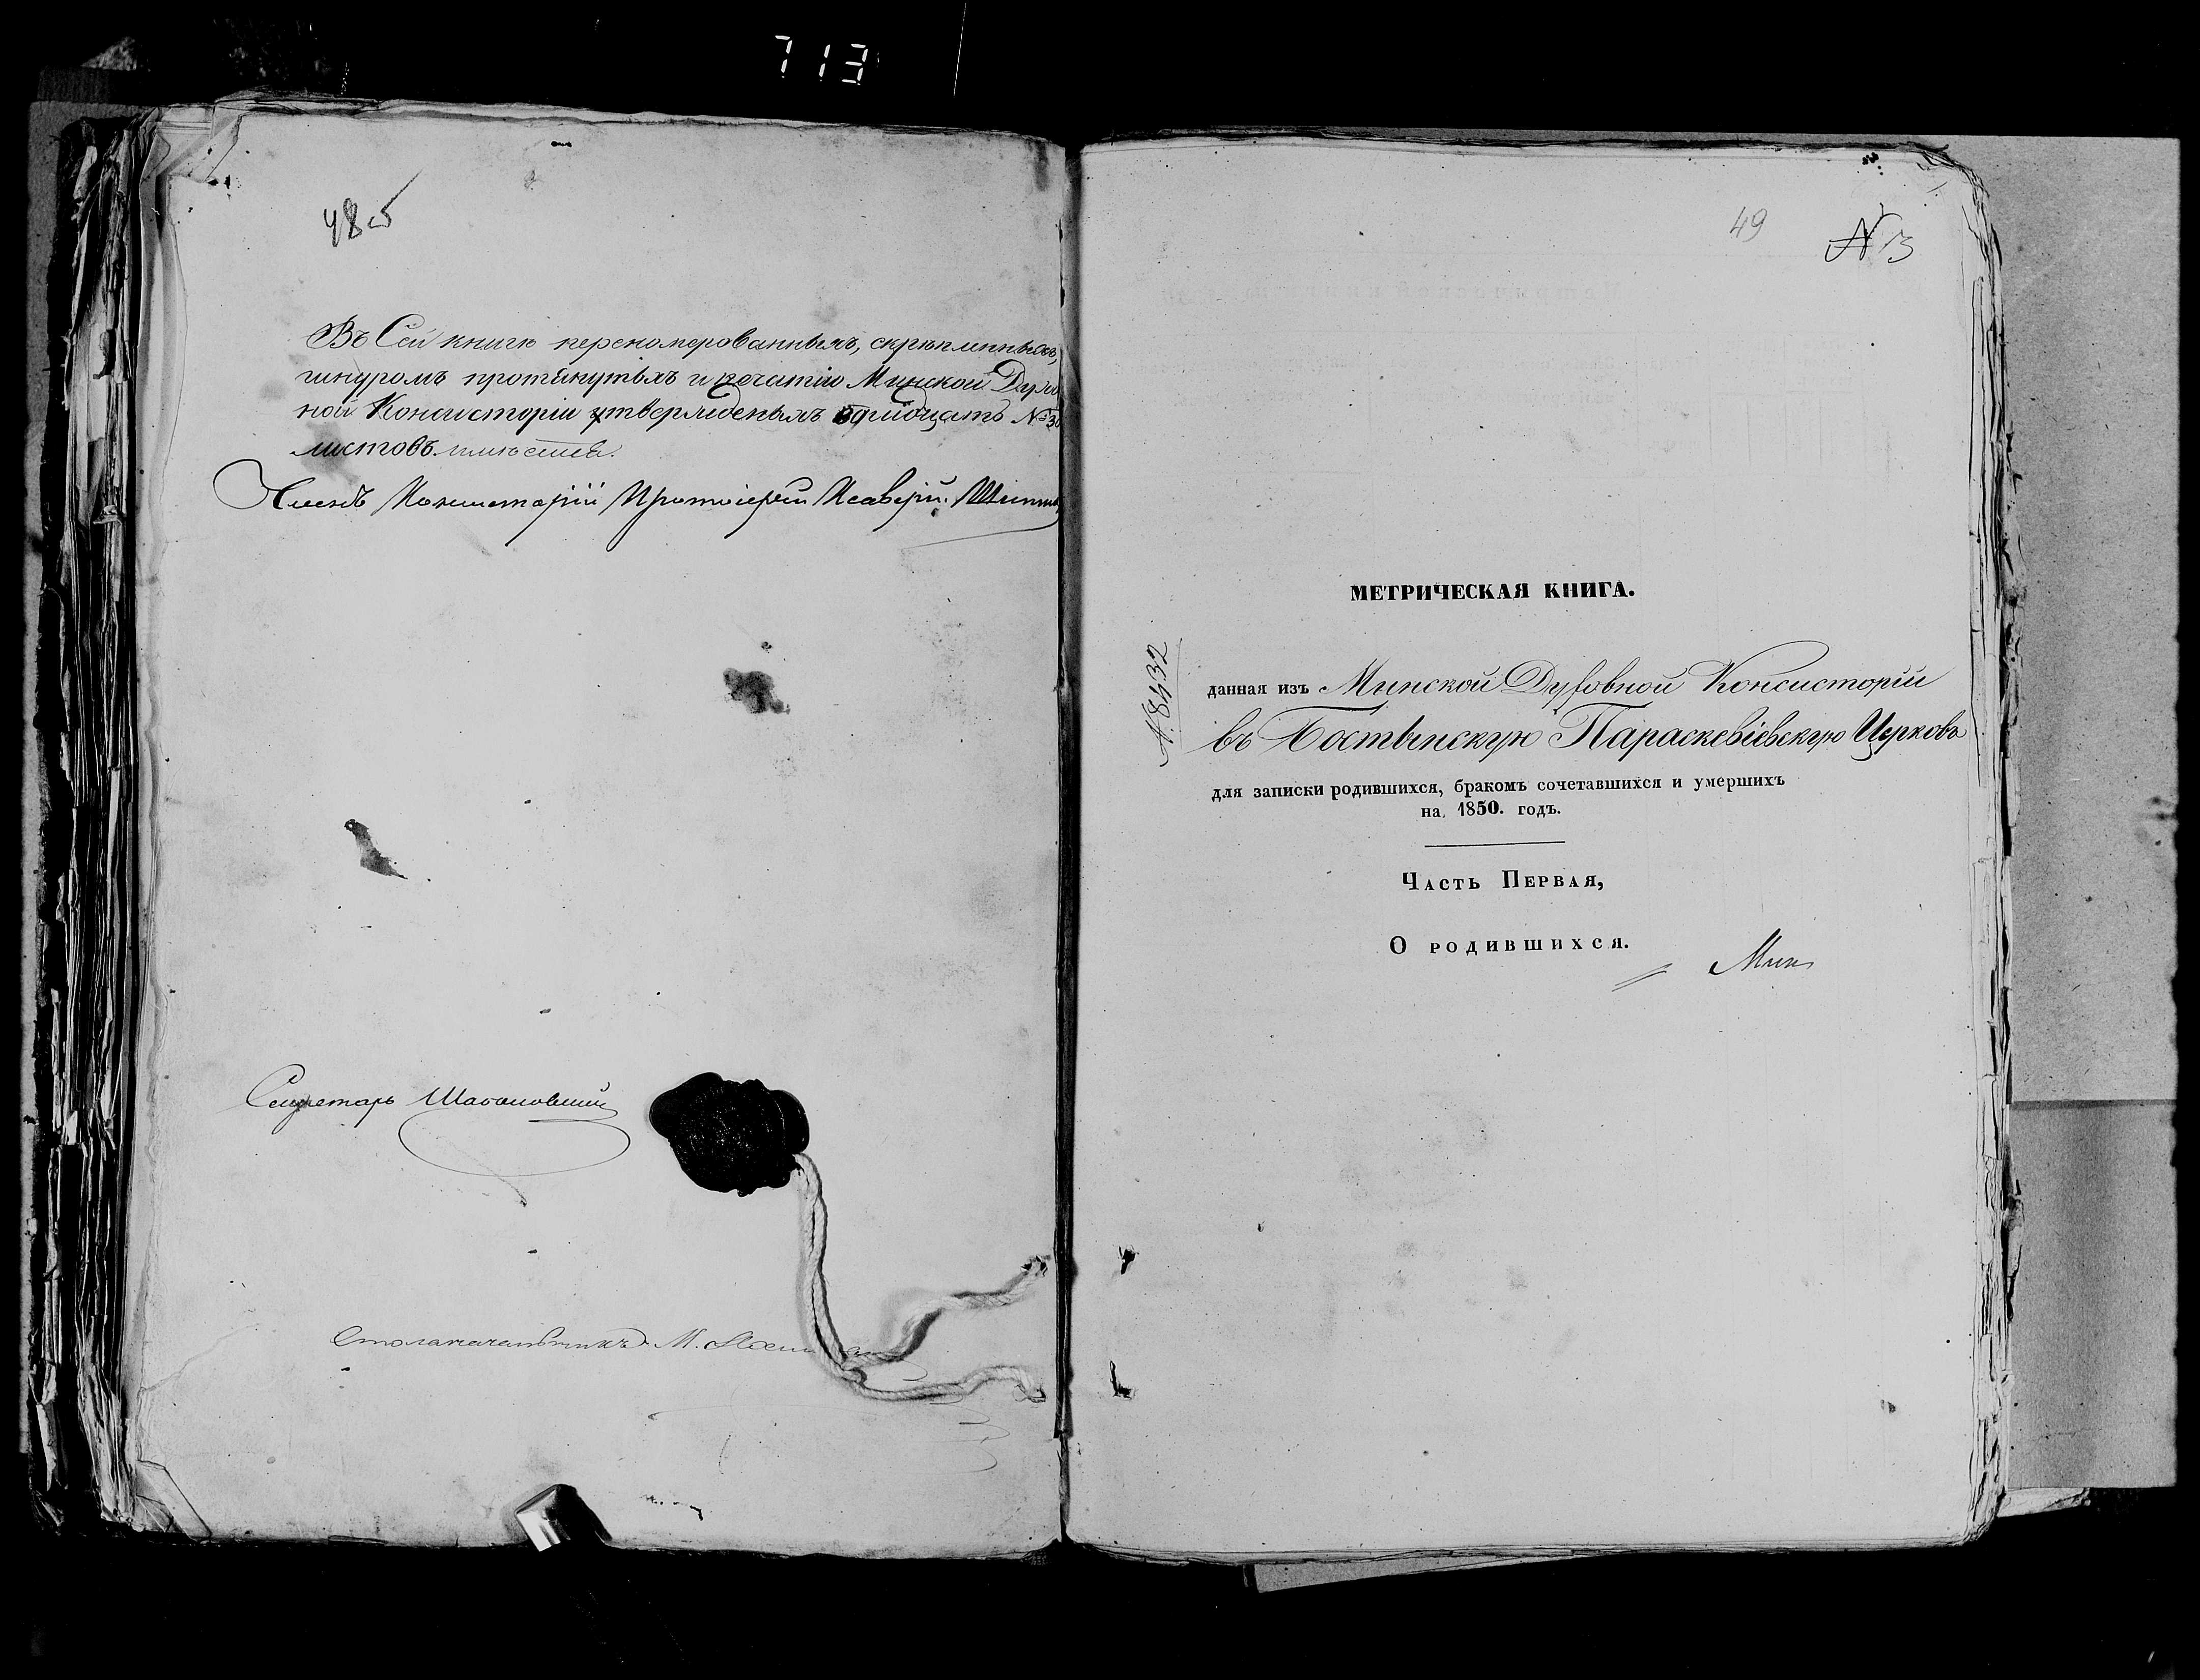 713
48 об
Въ Сей книгѣ переномерованныхъ, скрѣпленныхъ,
шнуромъ протянутыхъ и печатію Минской Духов
ной Консисторіи утвержденыхъ тридцать № 30
листовъ имѣется.
Членъ Консисторіи Протоіерей
Секретарь
Столоначальникъ М.
49
№ 3
МЕТРИЧЕСКАЯ КНИГА.
№ 8432
данная изъ Минской Духовной Консисторіи
въ Бостынскую Параскевіевскую Церковь
для записки родившихся, бракомъ сочетавшихся и умершихъ
на 1850. годъ.
Часть Первая,
О родившихся.
Мин